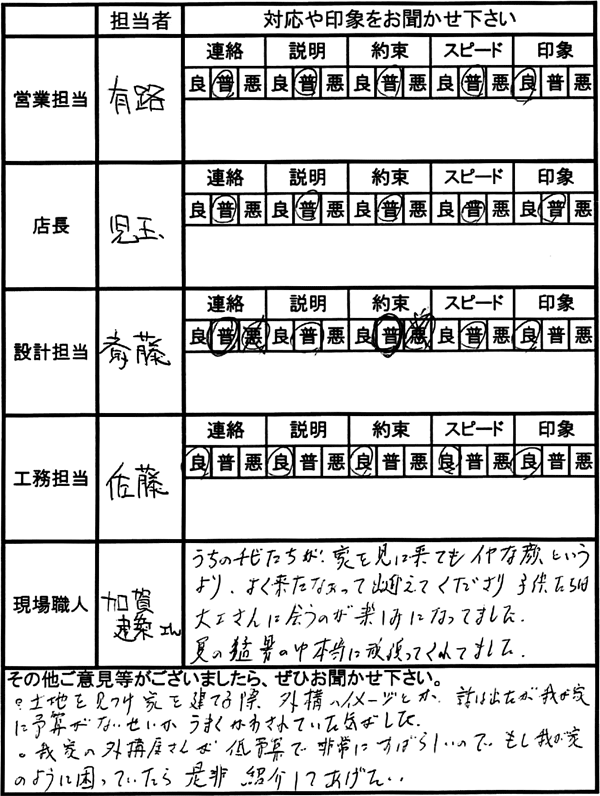 担当者 対応や印象をお聞かせ下さい
営業担当 有路
連絡 説明 約束 スピード 印象
良 普 悪 良 普 悪 良 普 悪 良 普 悪 良 普 悪
店長 児玉
連絡 説明 約束 スピード 印象
良 普 悪 良 普 悪 良 普 悪 良 普 悪 良 普 悪
設計担当 斎藤
連絡 説明 約束 スピード 印象
良 普 悪 良 普 悪 良 普 悪 良 普 悪 良 普 悪
工務担当 佐藤
連絡 説明 約束 スピード 印象
良 普 悪 良 普 悪 良 普 悪 良 普 悪 良 普 悪
現場職人 加賀建築さん
うちのチビたちが、家を見に来てもイヤな顔という
より、よく来たなぁって出迎えてくださり子供たちは
大工さんに会うのが楽しみになってました。
夏の猛暑の中本当に頑張ってくれてました。
その他ご意見等がございましたら、ぜひお聞かせ下さい。
。土地を見つけ家を建てる際、外構のイメージとか、話は出たが我が家
に予算がないせいか うまくかわされていた気がした
。我家の外構屋さんが低予算で非常にすばらしいので、もし我が家
のように困っていたら是非紹介してあげたい。